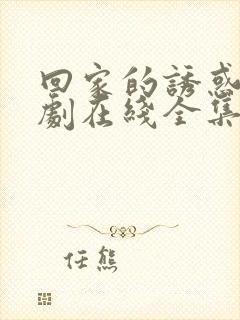 回家的誘惑
劇在綫全集
任熊